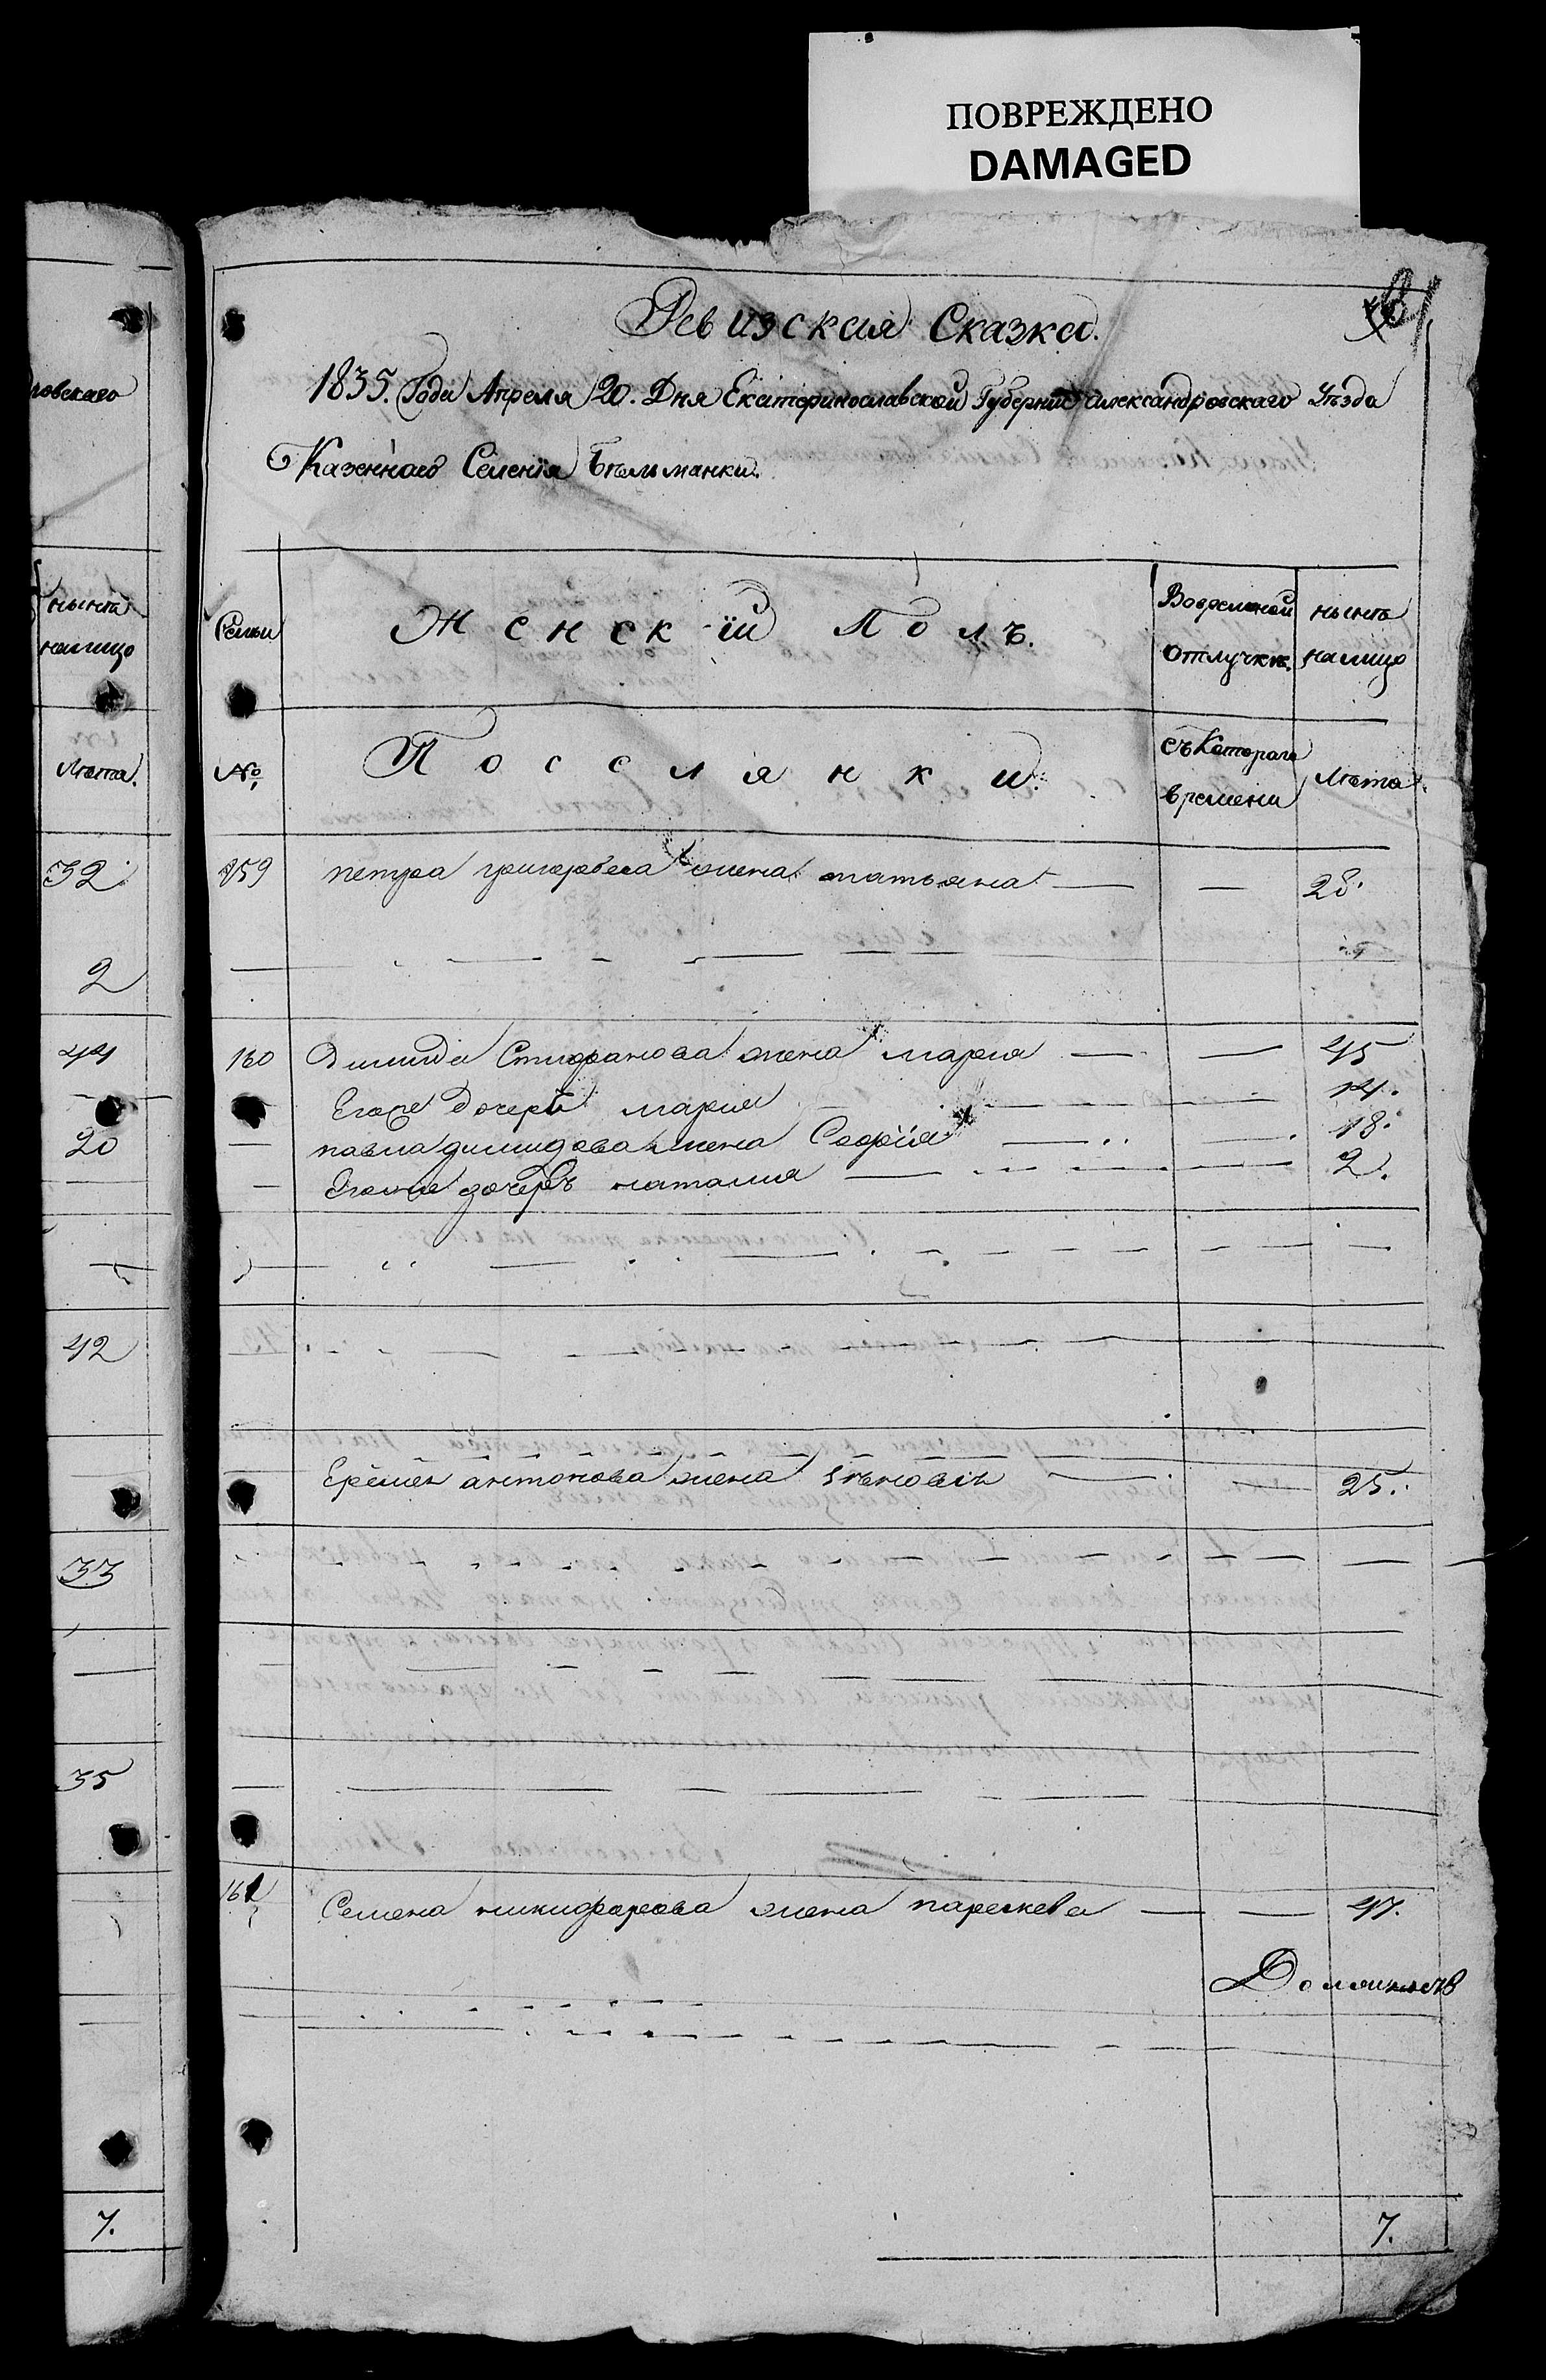 ПОВРЕЖДЕНО
DAMAGED
Ревизская Сказка.
1835. Года Апреля 20. Дня Екатеринославской Губернии Александровскаго Уѣзда
Казеннаго Селенія Бѣльманки.
нынѣ
налицо
Лѣта.
32
2
44
20
42
33
35
7.
Семьи
Женскій Полъ.
Вовременной
отлучкѣ.
нынѣ
налицо
№
Посселянки.
съ Котораго
времени
Лѣта.
159 петра григорьева жена татьяна 28.
160 Димида Стифанова жена мария 45
Егоже дочерь мария 14.
павла димидова жена Софія 18.
Егоже дочерь наталия 2.
Еремея антонова жена 25.
161 Семена никифарова жена параскева 47.
7.